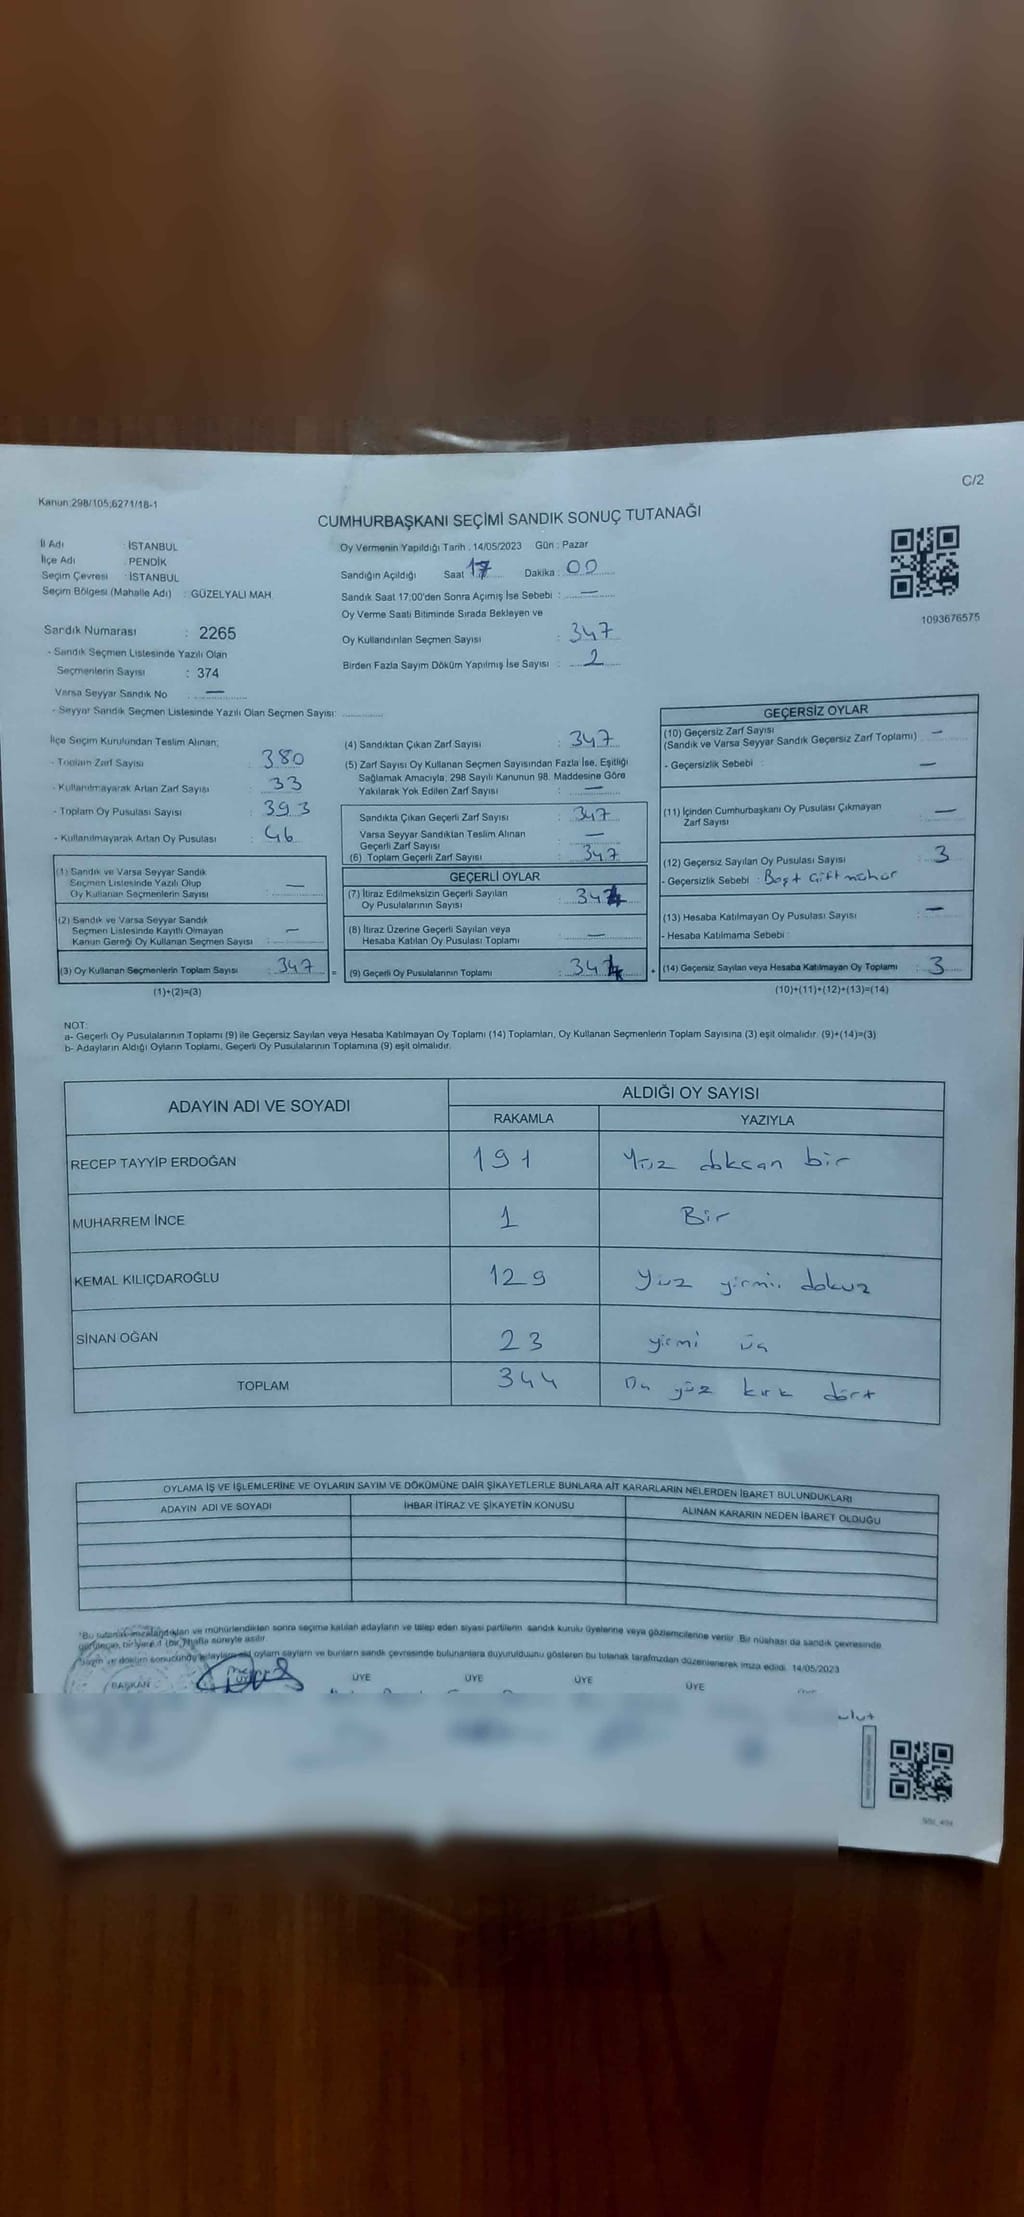 C/2
Kanun:298/105;6271/18-1
CUMHURBAŞKANI SEÇİMİ SANDIK SONUÇ TUTANAĞI
İl Adı : İSTANBUL
İlçe Adı : PENDİK
Seçim Çevresi : İSTANBUL
Seçim Bölgesi (Mahalle Adı) : GÜZELYALI MAH
Sandık Numarası : 2265
- Sandık Seçmen Listesinde Yazılı Olan
Seçmenlerin Sayısı : 374
Varsa Seyyar Sandık No —
- Seyyar Sandık Seçmen Listesinde Yazılı Olan Seçmen Sayısı:
Oy Vermenin Yapıldığı Tarih : 14/05/2023 Gün : Pazar
Sandığın Açıldığı Saat 17 Dakika : 00
Sandık Saat 17:00'den Sonra Açmış İse Sebebi : —
Oy Verme Saati Bitiminde Sırada Bekleyen ve
Oy Kullandırılan Seçmen Sayısı : 347
Birden Fazla Sayım Döküm Yapılmış İse Sayısı : 2
1093676575
İlçe Seçim Kurulundan Teslim Alınan;
- Toplam Zarf Sayısı : 380
- Kullanılmayarak Artan Zarf Sayısı : 33
- Toplam Oy Pusulası Sayısı : 393
- Kullanılmayarak Artan Oy Pusulası : 46
(1) Sandık ve Varsa Seyyar Sandık
Seçmen Listesinde Yazılı Olup
Oy Kullanan Seçmenlerin Sayısı : —
(2) Sandık ve Varsa Seyyar Sandık
Seçmen Listesinde Kayıtlı Olmayan
Kanun Gereği Oy Kullanan Seçmen Sayısı : —
(3) Oy Kullanan Seçmenlerin Toplam Sayısı : 347 =
(1)+(2)=(3)
(4) Sandıktan Çıkan Zarf Sayısı : 347
(5) Zarf Sayısı Oy Kullanan Seçmen Sayısından Fazla İse, Eşitliği
Sağlamak Amacıyla, 298 Sayılı Kanunun 98. Maddesine Göre
Yakılarak Yok Edilen Zarf Sayısı : —
Sandıkta Çıkan Geçerli Zarf Sayısı : 347
Varsa Seyyar Sandıktan Teslim Alınan
Geçerli Zarf Sayısı : —
(6) Toplam Geçerli Zarf Sayısı : 347
GEÇERLİ OYLAR
(7) İtiraz Edilmeksizin Geçerli Sayılan
Oy Pusulalarının Sayısı : 344
(8) İtiraz Üzerine Geçerli Sayılan veya
Hesaba Katılan Oy Pusulası Toplamı : —
(9) Geçerli Oy Pusulalarının Toplamı : 344 +
GEÇERSİZ OYLAR
(10) Geçersiz Zarf Sayısı
(Sandık ve Varsa Seyyar Sandık Geçersiz Zarf Toplamı) : —
- Geçersizlik Sebebi : —
(11) İçinden Cumhurbaşkanı Oy Pusulası Çıkmayan
Zarf Sayısı —
(12) Geçersiz Sayılan Oy Pusulası Sayısı : 3
- Geçersizlik Sebebi : Boş+
(13) Hesaba Katılmayan Oy Pusulası Sayısı : —
- Hesaba Katılmama Sebebi :
(14) Geçersiz Sayılan veya Hesaba Katılmayan Oy Toplamı : 3
(10)+(11)+(12)+(13)=(14)
NOT:
a- Geçerli Oy Pusulalarının Toplamı (9) ile Geçersiz Sayılan veya Hesaba Katılmayan Oy Toplamı (14) Toplamları, Oy Kullanan Seçmenlerin Toplam Sayısına (3) eşit olmalıdır. (9)+(14)=(3)
b- Adayların Aldığı Oyların Toplamı, Geçerli Oy Pusulalarının Toplamına (9) eşit olmalıdır.
ADAYIN ADI VE SOYADI ALDIĞI OY SAYISI
RAKAMLA YAZIYLA
RECEP TAYYİP ERDOĞAN 191 Yüz doksan bir
MUHARREM İNCE 1 Bir
KEMAL KILIÇDAROĞLU 129 Yüz yirmi dokuz
SİNAN OĞAN 23 yirmi üç
TOPLAM 344 Üç yüz kırk dört
OYLAMA İŞ VE İŞLEMLERİNE VE OYLARIN SAYIM VE DÖKÜMÜNE DAİR ŞİKAYETLERLE BUNLARA AİT KARARLARIN NELERDEN İBARET BULUNDUKLARI
ADAYIN ADI VE SOYADI İHBAR İTİRAZ VE ŞİKAYETİN KONUSU ALINAN KARARIN NEDEN İBARET OLDUĞU
*Bu tutanak imzalandıktan ve mühürlendikten sonra seçime katılan adayların ve talep eden siyasi partilerin sandık kurulu üyelerine veya gözlemcilerine verilir. Bir nüshası da sandık çevresinde
görülecek bir yere 1 (bir) hafta süreyle asılır.
oyların sayılarını ve bunların sandık çevresinde bulunanlara duyurulduğunu gösteren bu tutanak tarafımızdan düzenlenerek imza edildi. 14/05/2023
BAŞKAN ÜYE ÜYE ÜYE ÜYE ÜYE